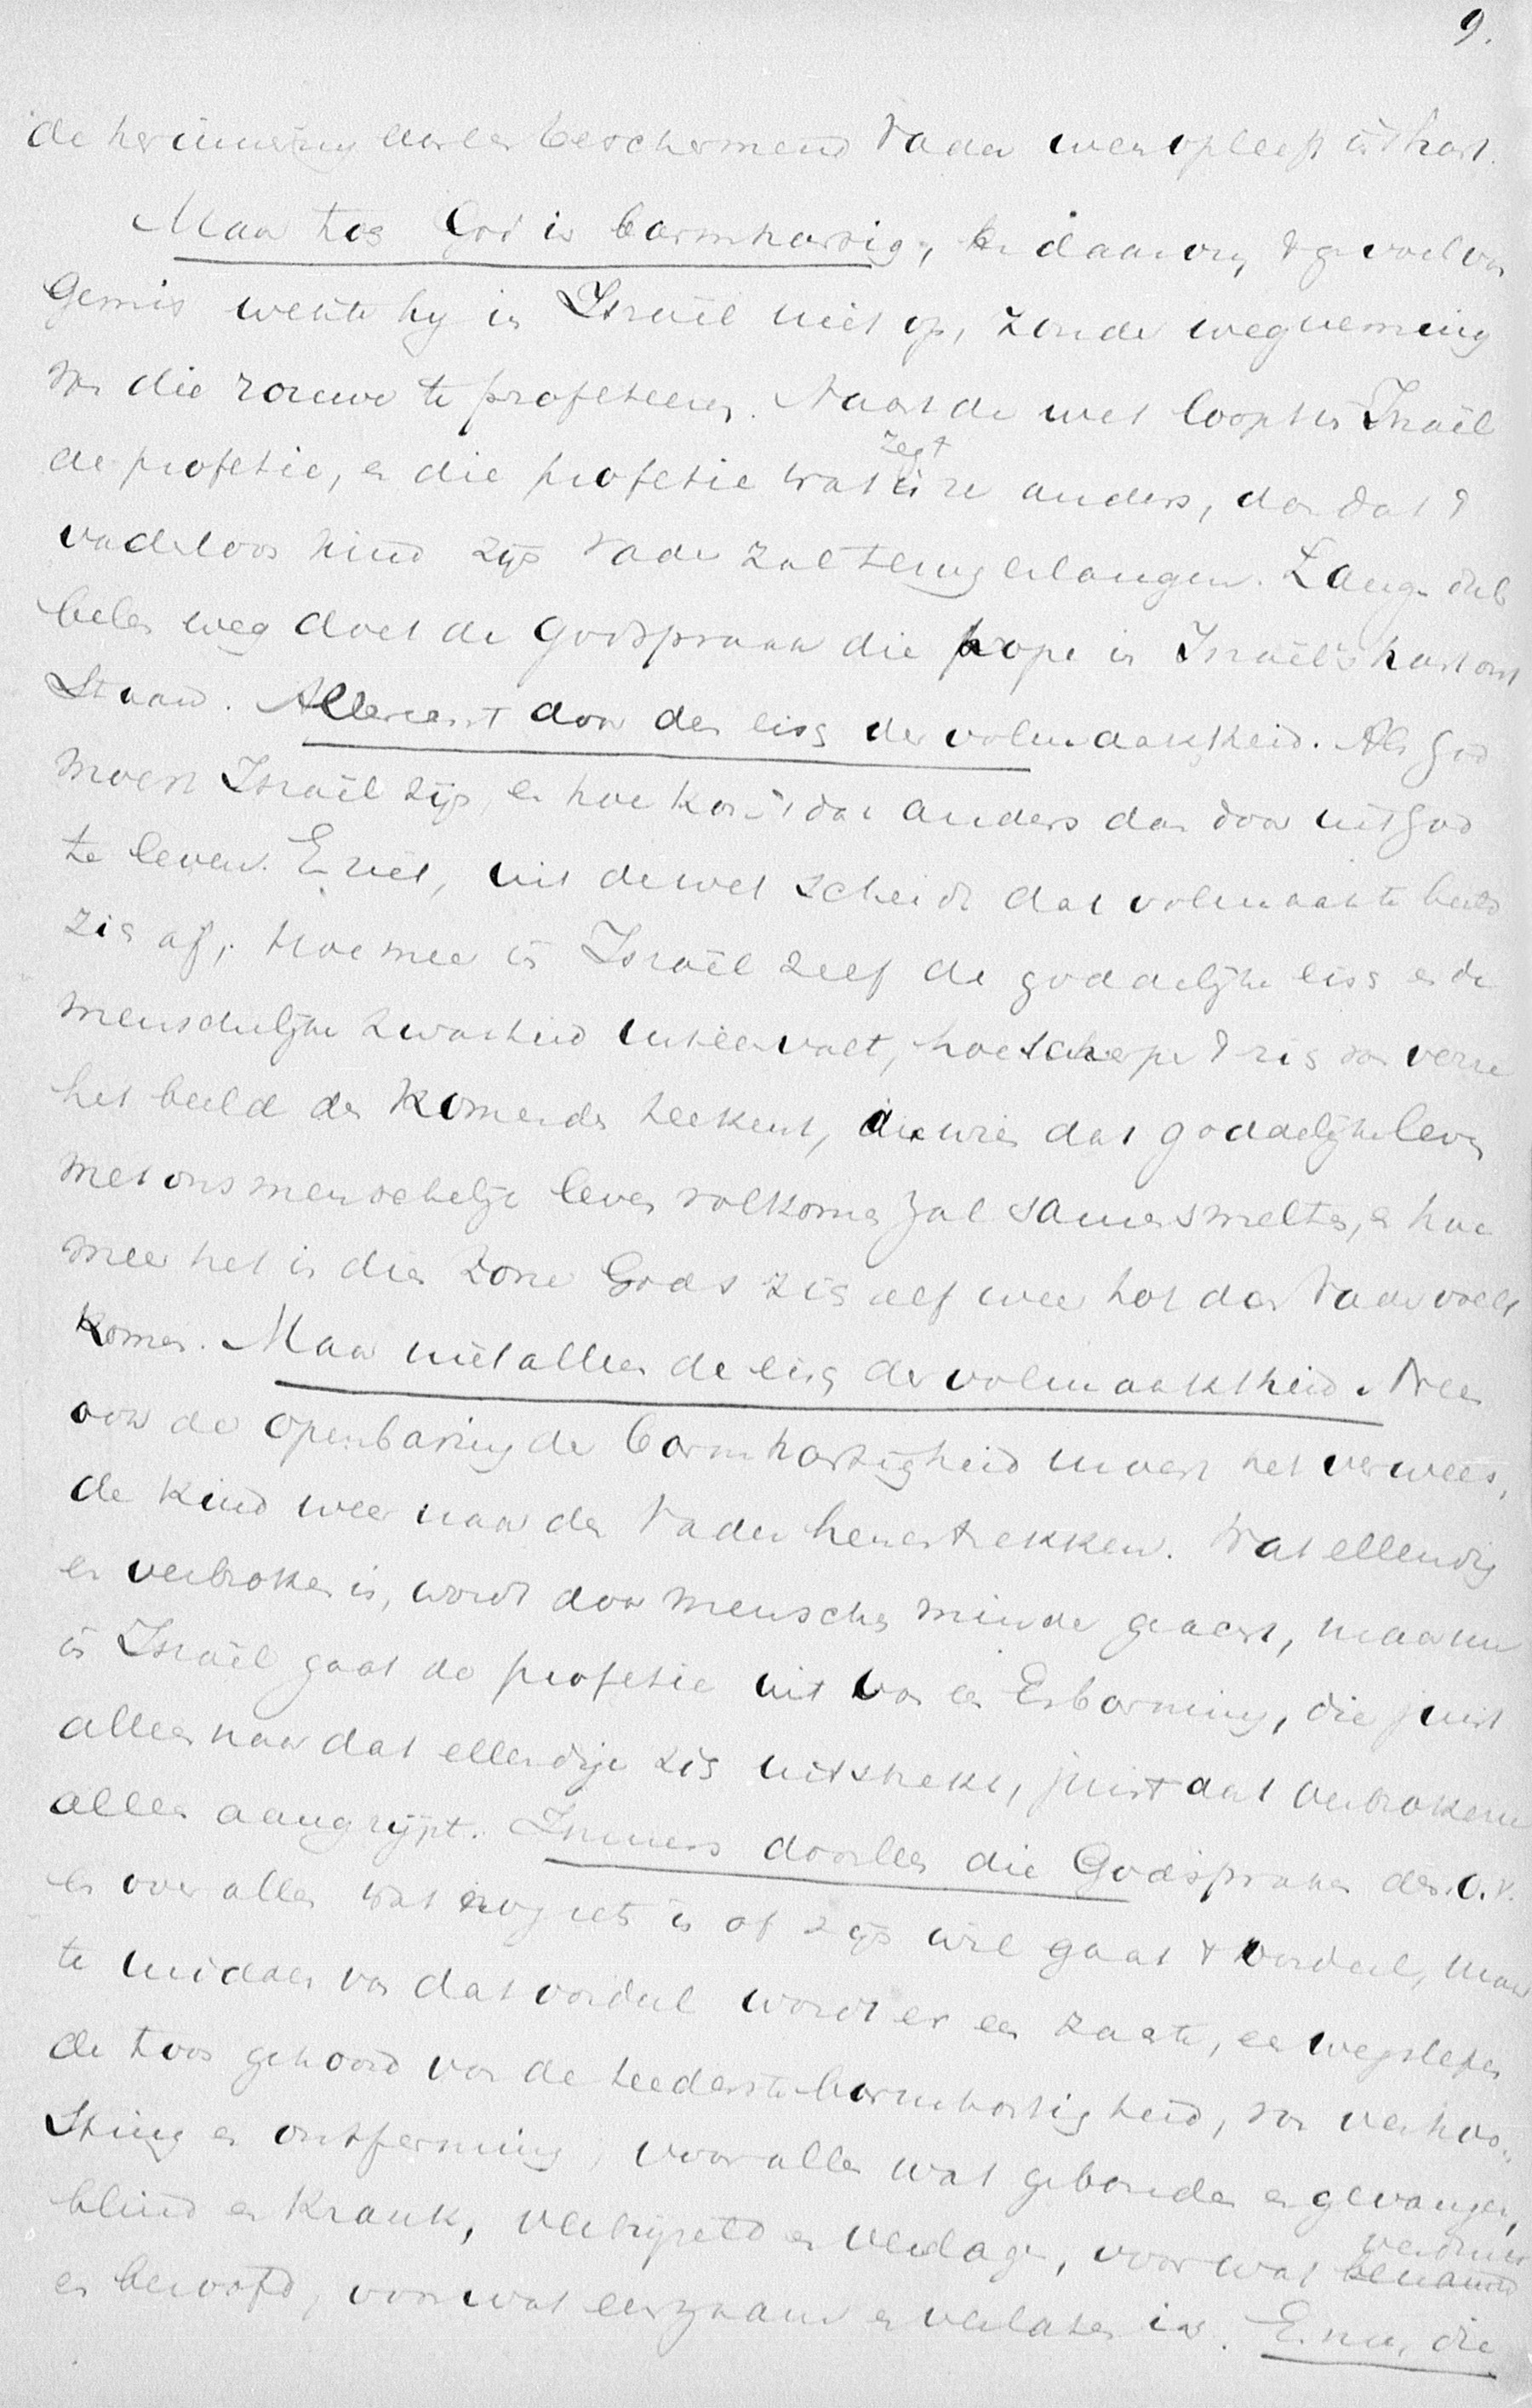 9.
de herinnering aan een beschermend Vader weer opleeft in 't hart.
Maar toch God is barmhartig, En daarom, 't gevoel van
Gemis wekte hy in Israël niet op, zonder wegneming
van die rouwe te profeteeren. Naast de wet loopt in Israël
de profetie, en die profetie wat zegt ze anders, dan dat 't
vaderloos kind zijn Vader zal terug erlangen. Langs dub
belen weg doet de Godspraak die hope in Israëls hart ont
staan. Allereerst door den eisch der volmaaktheid. Als God
moest Israël zijn, en hoe kon 't dat anders dan door uit God
te leven. En ziet, uit de wet scheidt dat volmaakte beeld
zich af, hoe meer in Israël zelf de goddelijke eisch en de
menschelijke zwakheid uiteenvalt, hoe scherper 't zich van verre
het beeld des Komenden teekent, in wien dat goddelijke leven
met ons menschelijk leven volkomen zal samensmelten, en hoe
meer het in dien Zone Gods zich zelf weer tot den Vader voelt
komen. Maar niet alleen de eisch der volmaaktheid. Neen
ook de openbaring der barmhartigheid moest het verwees,
de kind weer naar den Vader henentrekken. Wat ellendig
en verbroken is, wordt door menschen minder geacht, maar nu
in Israël gaat de profetie uit van een Erbarming, die juist
alleen naar dat ellendige zich uitstrekt, juist dat verbrokene
alleen aangrijpt. Immers doorlees die Godspraken des O.V.
En over alles wat nog iets is of zijn wil gaat 't oordeel, maar
te midden van dat oordeel wordt er een zachte, een wegslepen
de toon gehoord van de teederste barmhartigheid, van vertroo„
sting en ontferming, voor alles wat gebonden en gevangen,
blind en krank, verbrijzeld en verslagen, voor wat benauwd
en beroofd, voor wat eenzaam en verlaten is. En nu, die